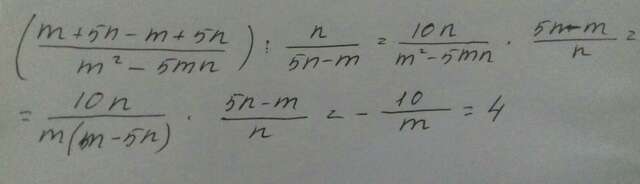 (m+5n-m+5n / m² - 5mn) : n / 5n-m = 10n / m²-5mn · 5n-m / n =
= 10n / m(m-5n) · 5n-m / n = - 10 / m = 4